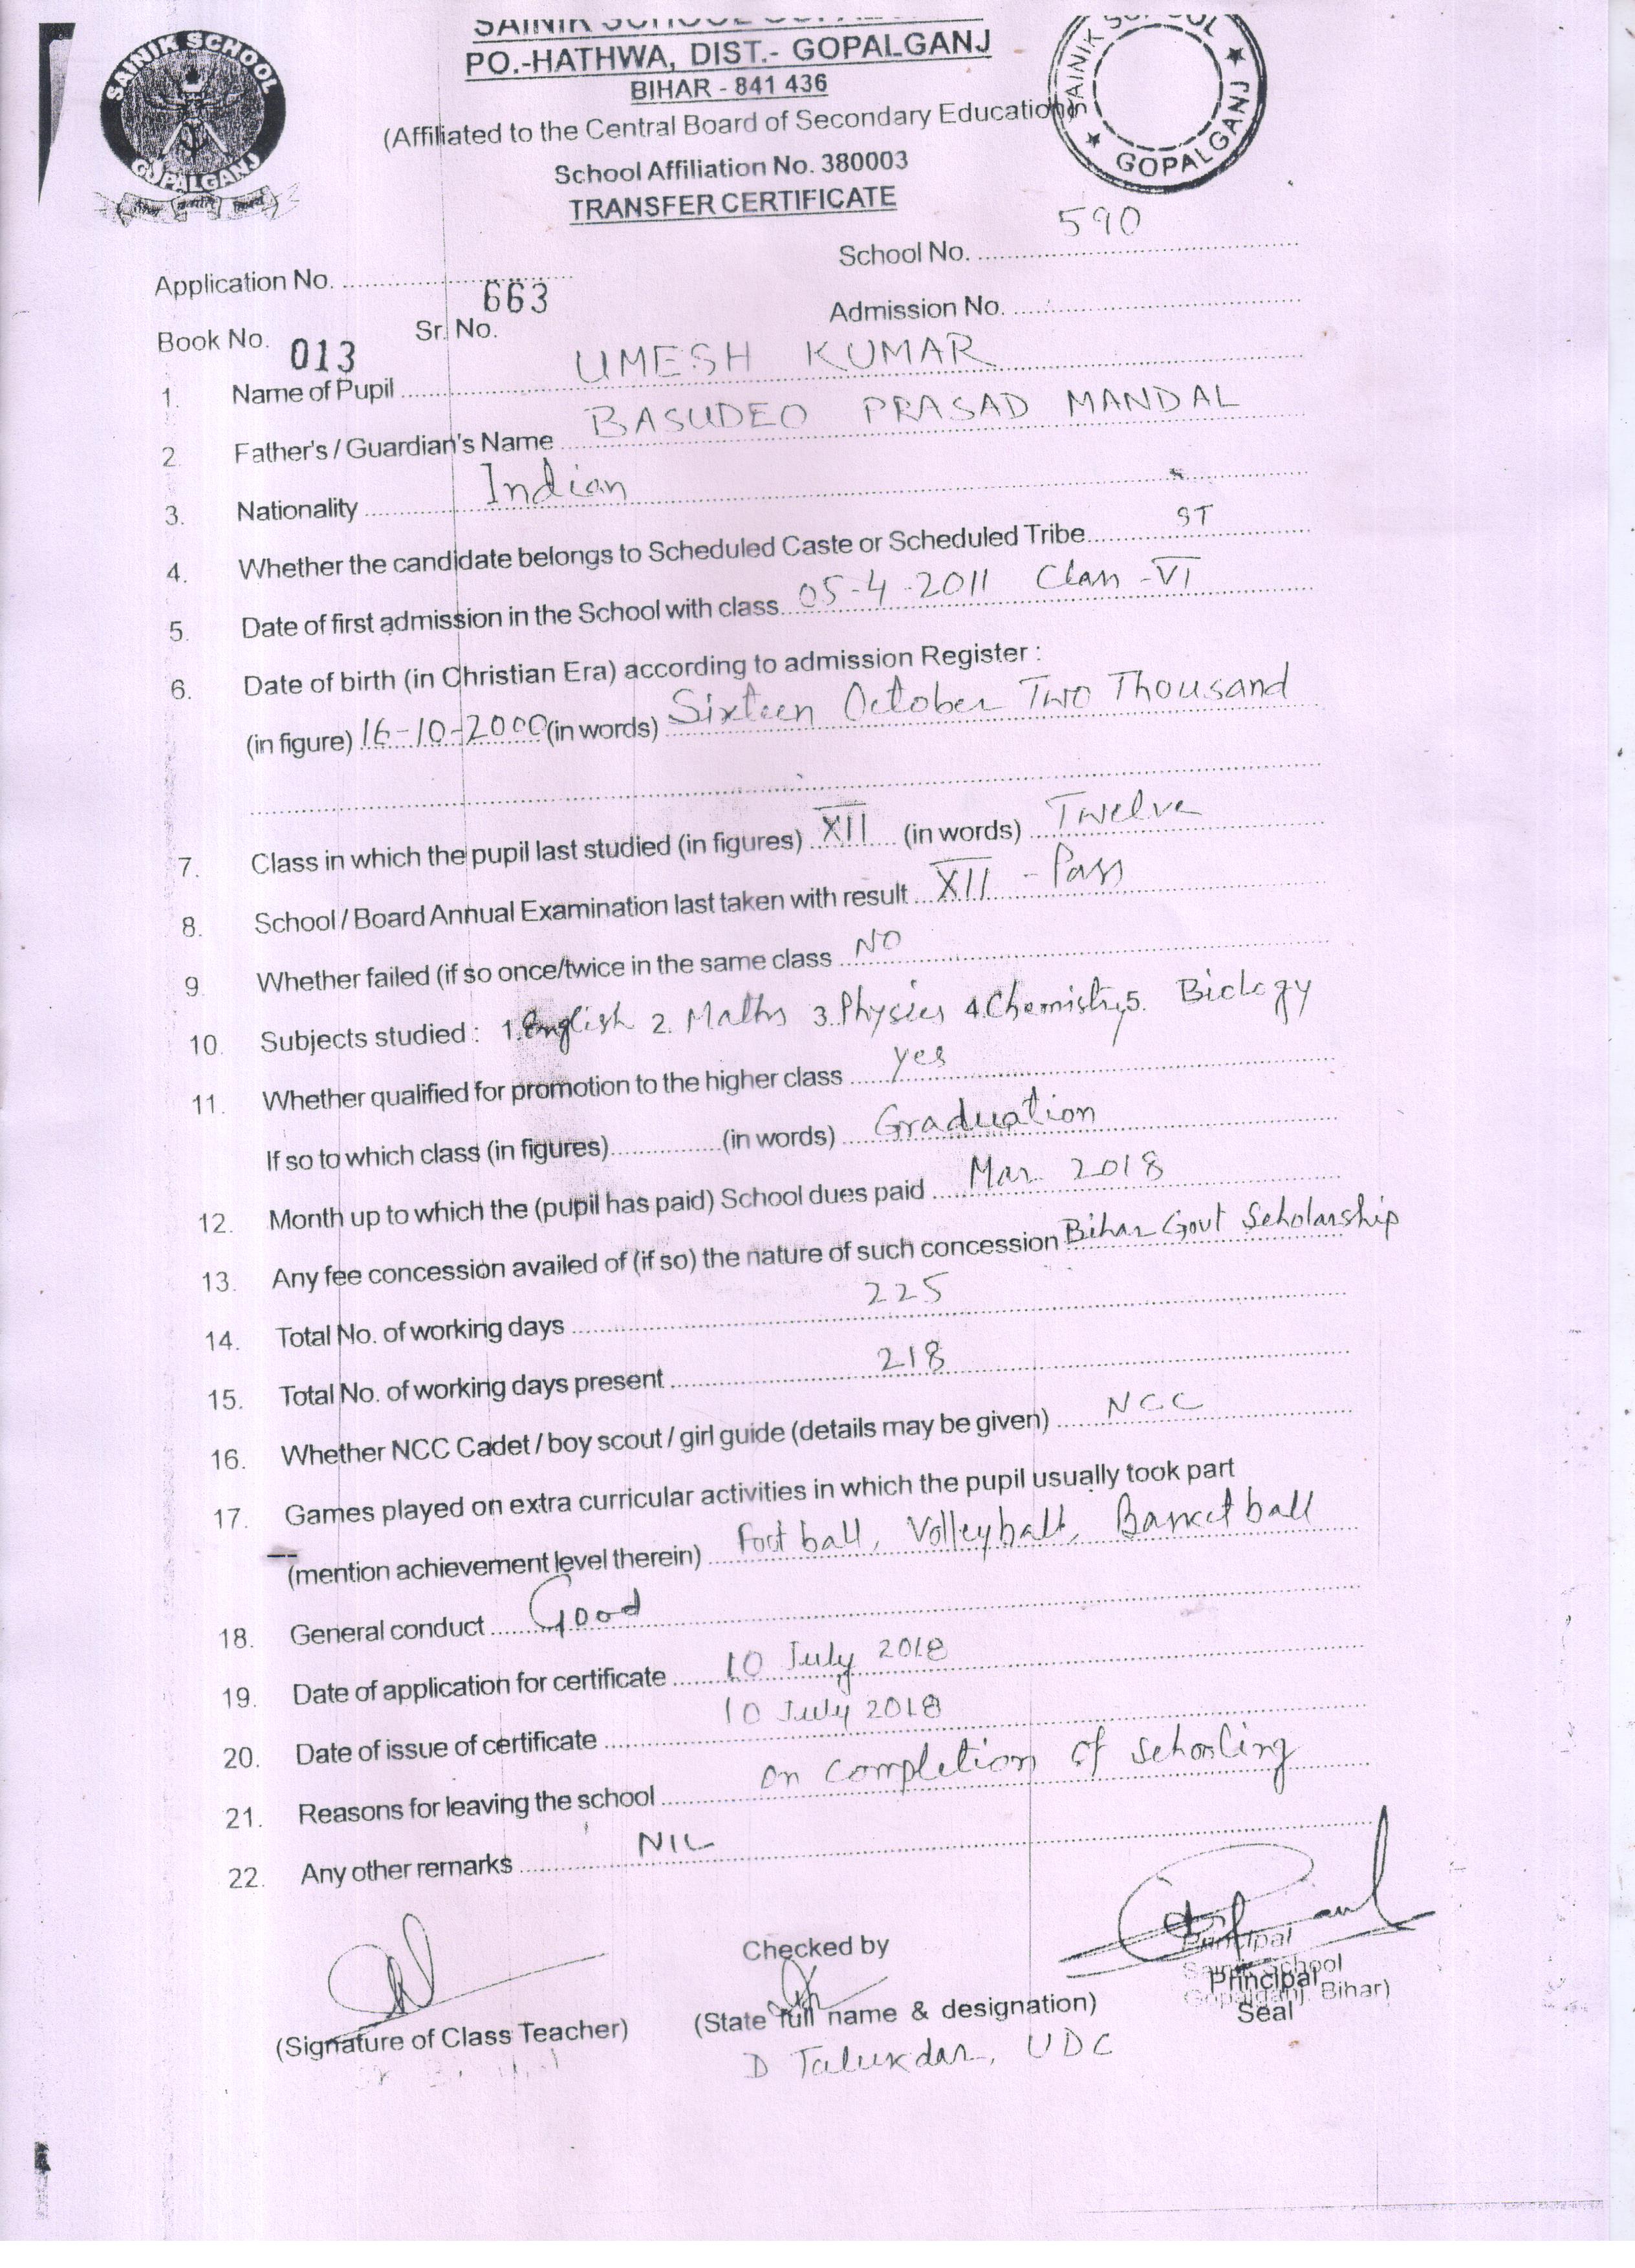 SAINIK SCHOOL
GOPALGANJ
SAINIK SCHOOL
PO.-HATHWA, DIST.- GOPALGANJ
BIHAR - 841 436
(Affiliated to the Central Board of Secondary Education)
SAINIK SCHOOL ★ GOPALGANJ ★
School Affiliation No. 380003
TRANSFER CERTIFICATE
School No. 590
Application No.
Admission No.
Book No. 013 Sr. No. 663
1. Name of Pupil UMESH KUMAR
2. Father's / Guardian's Name BASUDEO PRASAD MANDAL
3. Nationality Indian
4. Whether the candidate belongs to Scheduled Caste or Scheduled Tribe ST
5. Date of first admission in the School with class 05-4-2011 Class - VI
6. Date of birth (in Christian Era) according to admission Register :
(in figure) 16-10-2000 (in words) Sixteen October Two Thousand
7. Class in which the pupil last studied (in figures) XII (in words) Twelve
8. School / Board Annual Examination last taken with result XII - Pass
9. Whether failed (if so once/twice in the same class NO
10. Subjects studied : 1. English 2. Maths 3. Physics 4. Chemistry 5. Biology
11. Whether qualified for promotion to the higher class yes
If so to which class (in figures) (in words) Graduation
12. Month up to which the (pupil has paid) School dues paid Mar 2018
13. Any fee concession availed of (if so) the nature of such concession Bihar Govt Scholarship
14. Total No. of working days 225
15. Total No. of working days present 218
16. Whether NCC Cadet / boy scout / girl guide (details may be given) NCC
17. Games played on extra curricular activities in which the pupil usually took part
(mention achievement level therein) Foot ball, Volleyball, Basket ball
18. General conduct Good
19. Date of application for certificate 10 July 2018
20. Date of issue of certificate 10 July 2018
21. Reasons for leaving the school on completion of schooling
22. Any other remarks NIL
Checked by
Principal
Sainik School
Gopalganj, Bihar)
Principal
Seal
(Signature of Class Teacher) (State full name & designation)
D Talukdar, UDC